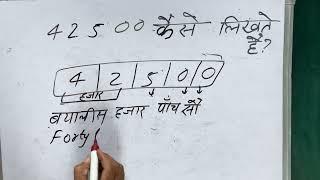 42500 कैसे लिखते
हैं?
4 2 5 0 0
हजार
बयालीस हजार पाँच सौ
Forty